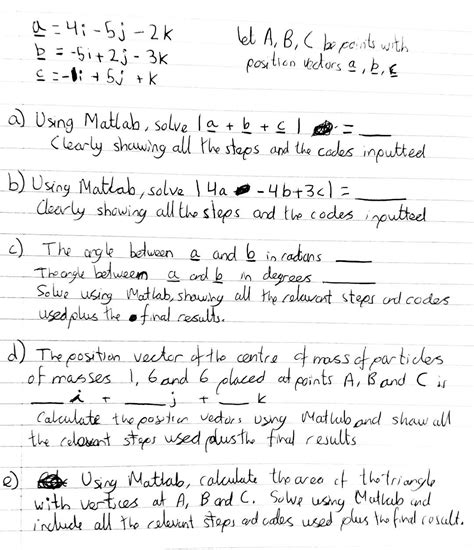 a = 4i - 5j - 2k
b = -5i + 2j - 3k
c = -1i + 5j + k
let A, B, C be points with
position vectors a, b, c
a) Using Matlab, solve |a + b + c| = ___
Clearly showing all the steps and the codes inputted
b) Using Matlab, solve |4a - 4b + 3c| = ___
Clearly showing all the steps and the codes inputted
c) The angle between a and b in radians ___
The angle between a and b in degrees ___
Solve using Matlab, showing all the relavant steps and codes
used plus the final results.
d) The position vector of the centre of mass of particles
of masses 1, 6 and 6 placed at points A, B and C is
___ i + ___ j + ___ k
Calculate the position vectors using Matlab and show all
the relavant steps used plus the final results
e) Using Matlab, calculate the area of the triangle
with vertices at A, B and C. Solve using Matlab and
include all the relevant steps and codes used plus the final result.